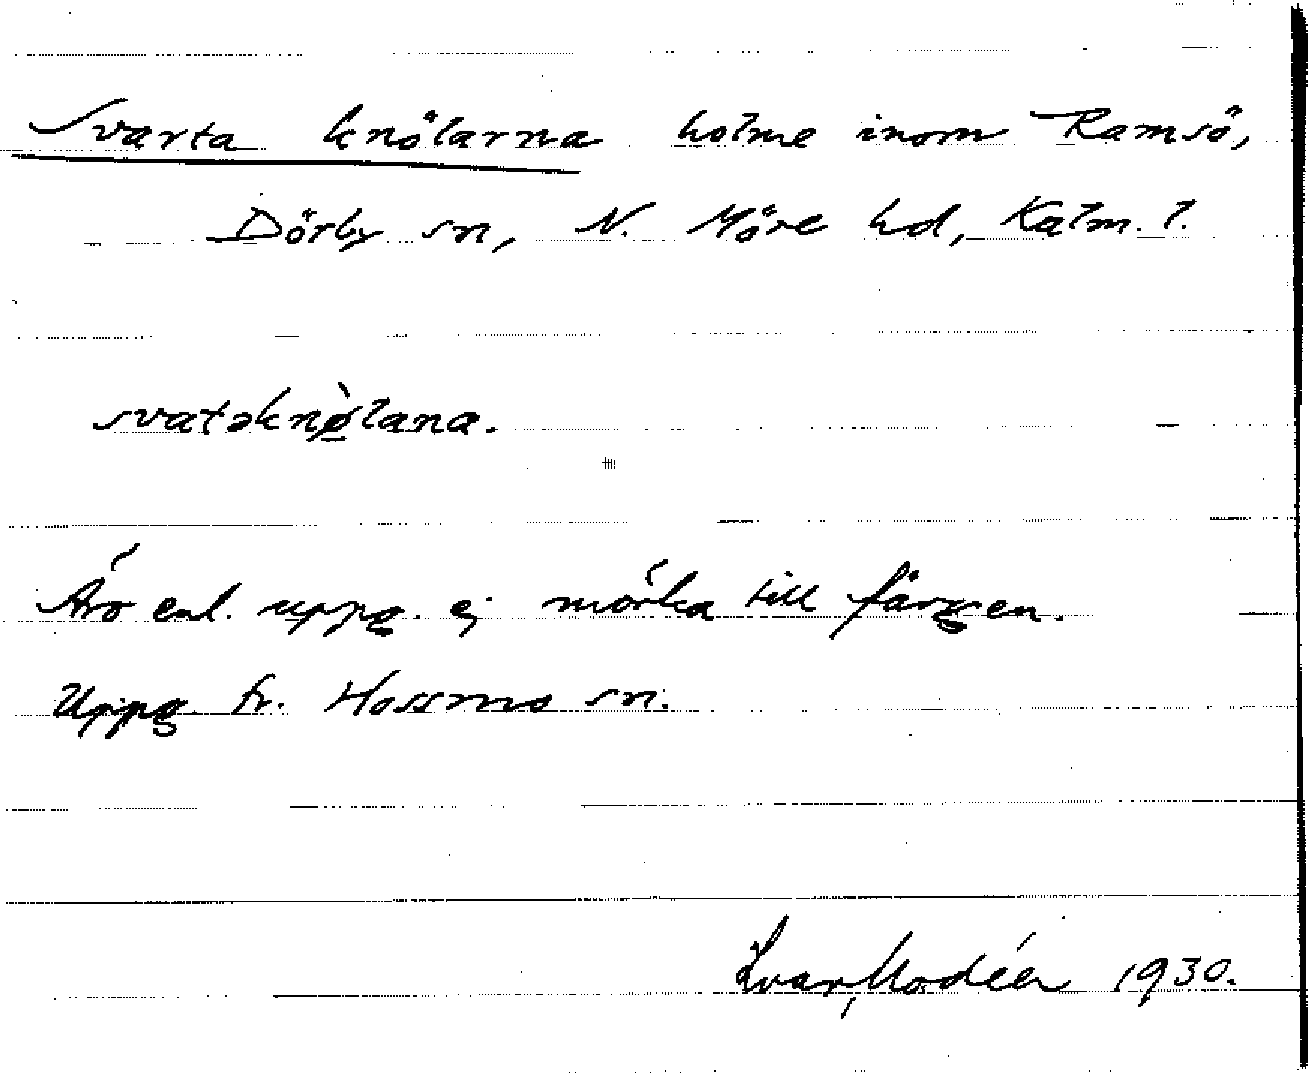 Svarta knölarna holme inom Ramsö,
Dörby sn, N. Möre hd, Kalm. l.
svatəknø̠̀lana.
Äro enl. uppg. ej mörka till färgen.
Uppg. fr. Hossmo sn.
Ivar Modéer 1930.